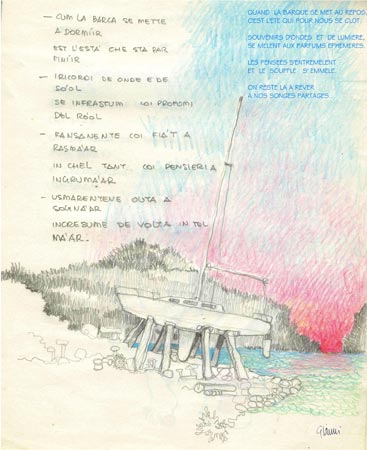 — CUM LA BARCA SE METTE
A DORMIIR
EST L'ESTA' CHE STA PAR
FINIIR
— I RICORDI DE ONDE E DE
SO'OL
SE INFRASTUM COI PROFOMI
DEL ROOL
— PANSANENTE COI FIA'T A
RASMA'AR
IN CHEL TANT COI PENSIERI A
INGRUMA'AR
— USMARENTENE OUTA A
SOGNA'AR
INCRESUME DE VOLTA IN TEL
MA'AR.
QUAND LA BARQUE SE MET AU REPOS,
C'EST L'ÉTÉ QUI POUR NOUS SE CLOT.
SOUVENIRS D'ONDES ET DE LUMIERE,
SE MELENT AUX PARFUMS EPHEMERES.
LES PENSEES S'ENTREMELENT
ET LE SOUFFLE S'EMMELE.
ON RESTE LA A REVER
A NOS SONGES PARTAGES
Gianni